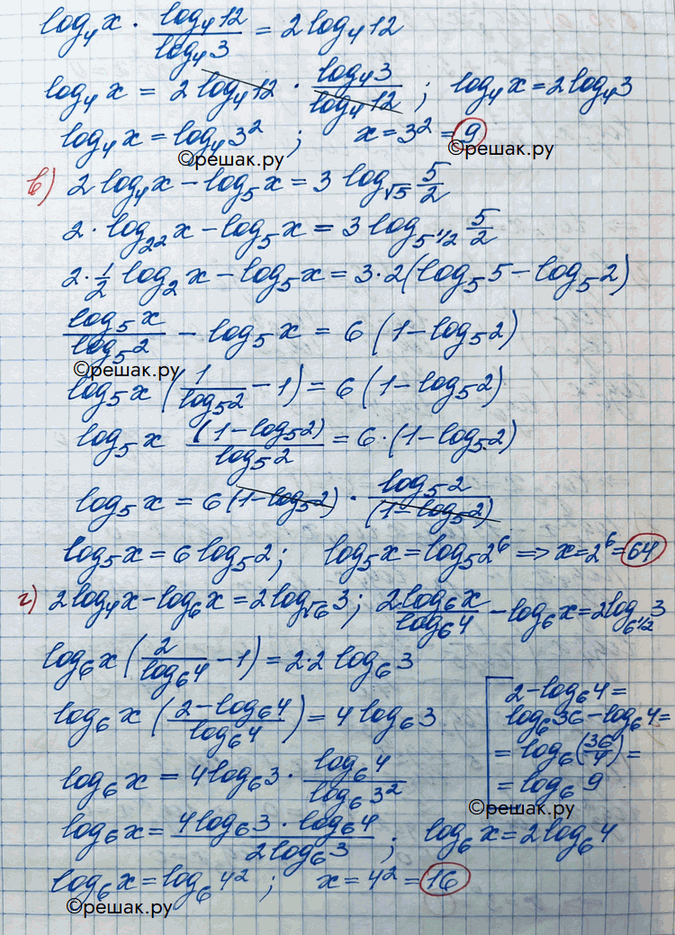 log₄x · log₄12/log₄3 = 2log₄12
log₄x = 2log₄12 · log₄3/log₄12 ; log₄x = 2log₄3
log₄x = log₄3² ; x = 3² = 9
©решак.ру ©решак.ру
в) 2log₄x - log₅x = 3log_√5 5/2
2·log_2² x - log₅x = 3log_5^1/2 5/2
2·1/2 log₂x - log₅x = 3·2(log₅5 - log₅2)
log₅x/log₅2 - log₅x = 6(1 - log₅2)
©решак.ру
log₅x (1/log₅2 - 1) = 6(1 - log₅2)
log₅x (1 - log₅2)/log₅2 = 6·(1 - log₅2)
log₅x = 6(1 - log₅2) · log₅2/(1 - log₅2)
log₅x = 6log₅2 ; log₅x = log₅2⁶ => x = 2⁶ = 64
г) 2log₄x - log₆x = 2log_√6 3 ; 2log₆x/log₆4 - log₆x = 2log_6^1/2 3
log₆x (2/log₆4 - 1) = 2·2log₆3
log₆x (2 - log₆4/log₆4) = 4log₆3
2 - log₆4 =
log₆36 - log₆4 =
= log₆(36/4) =
= log₆9
©решак.ру
log₆x = 4log₆3 · log₆4/log₆3²
log₆x = 4log₆3 · log₆4/2log₆3 ; log₆x = 2log₆4
log₆x = log₆4² ; x = 4² = 16
©решак.ру